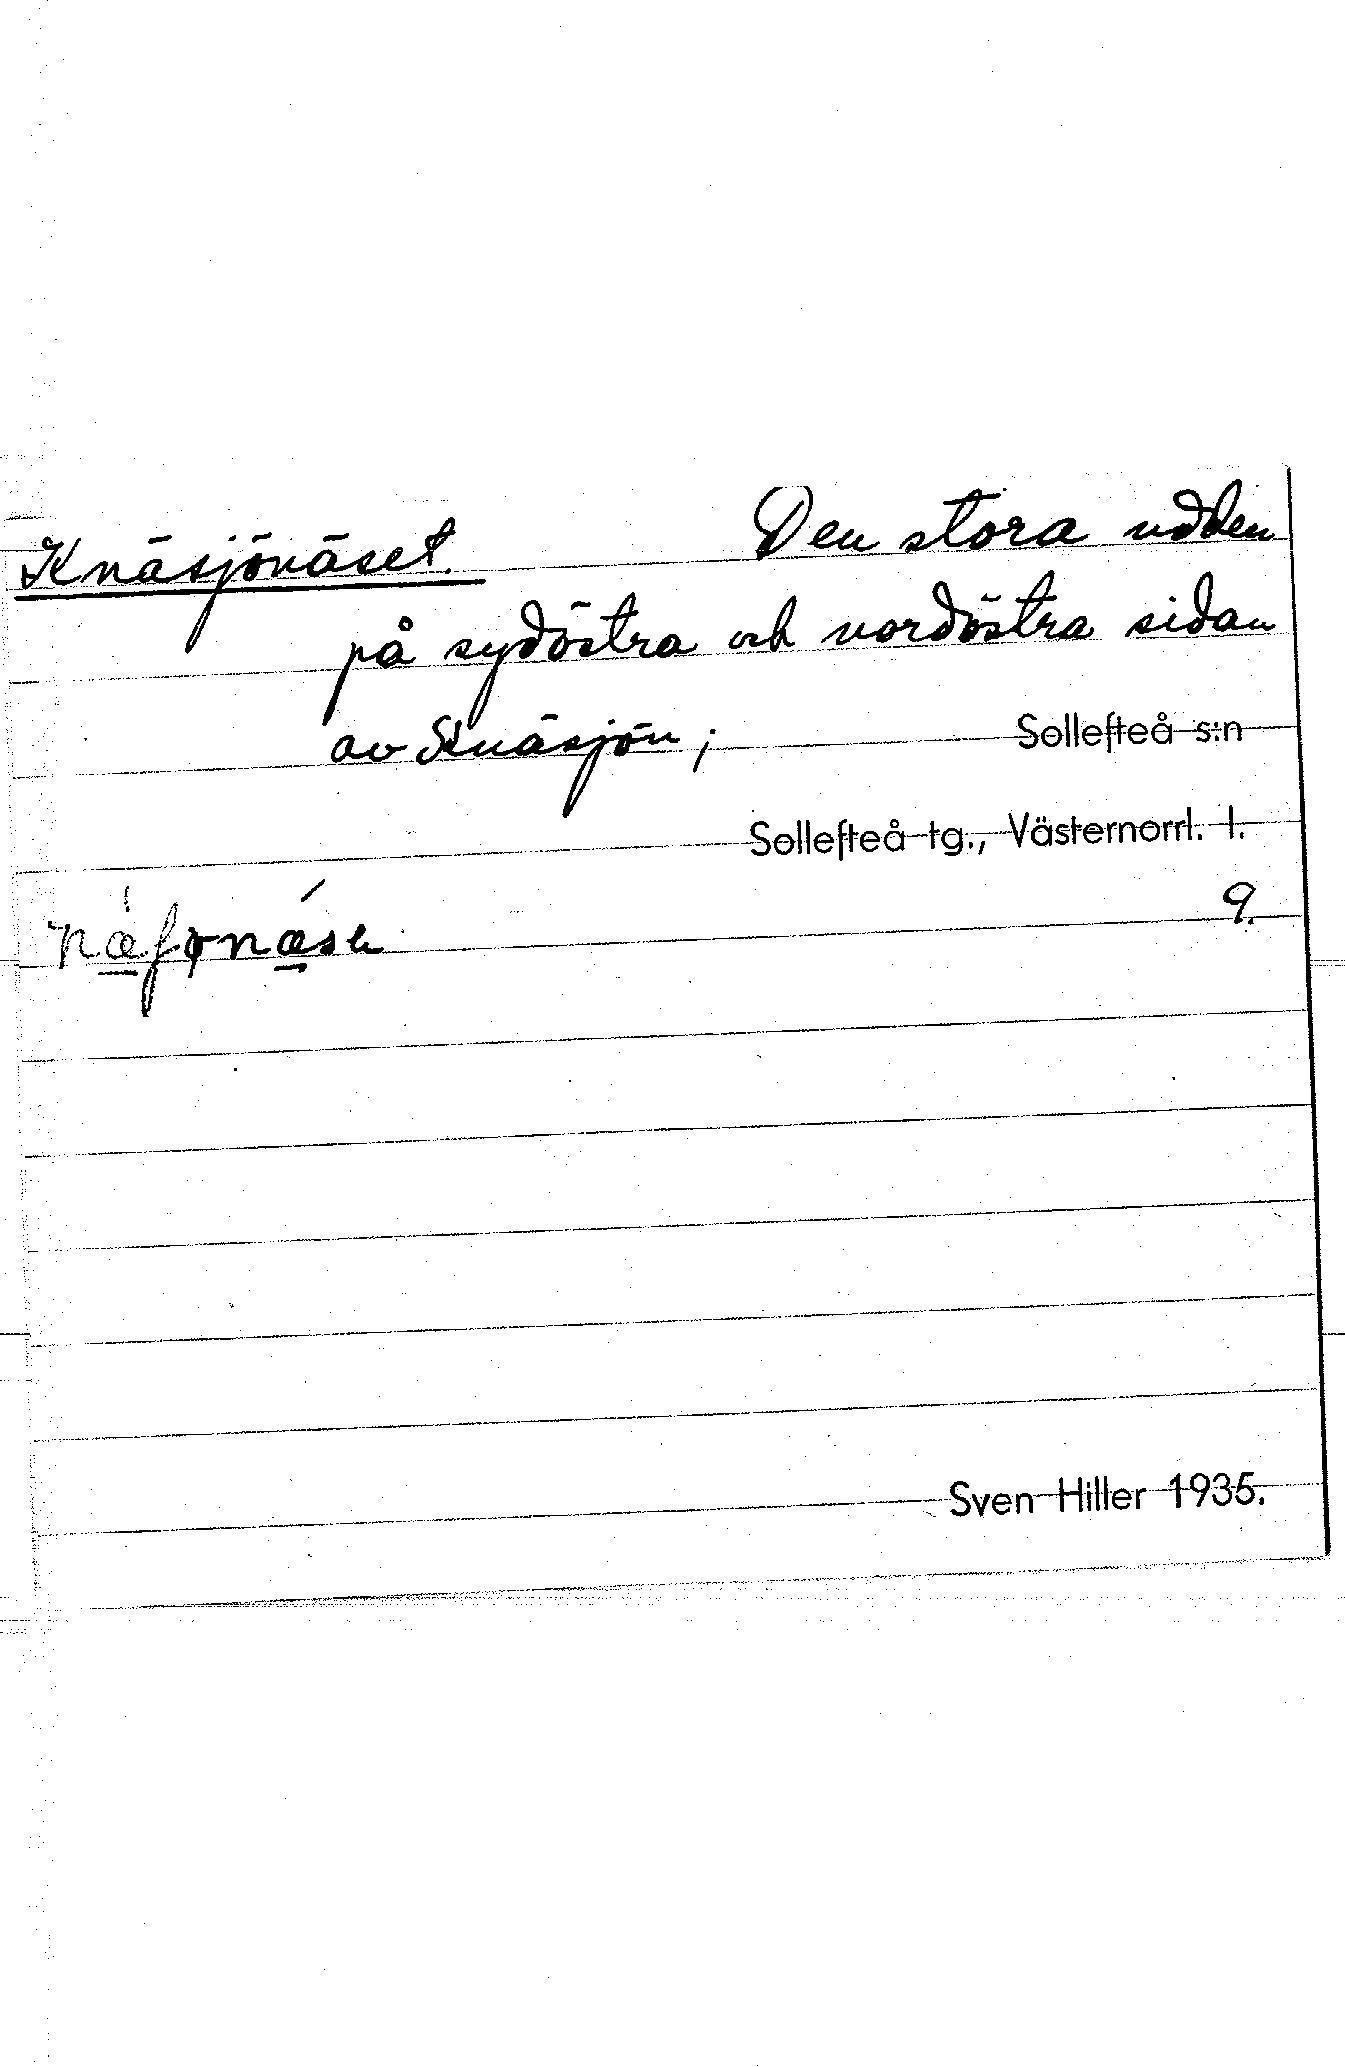 Knäsjönäset. Den stora udden
på sydöstra och nordöstra sidan
av Knäsjön; Sollefteå s:n
Sollefteå tg., Västernorrl. l.
9.
Sven Hiller 1935.